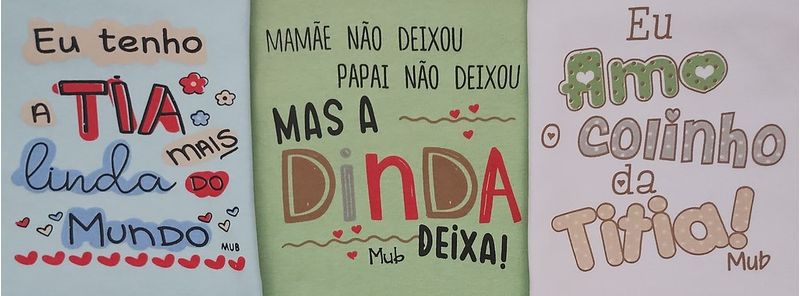 Eu tenho
A TIA
MAIS
linda DO
MUNDO
MUB
MAMÃE NÃO DEIXOU
PAPAI NÃO DEIXOU
MAS A
DiNDA
DEIXA!
Mub
Eu
Amo
o colinho
da
Titia!
Mub